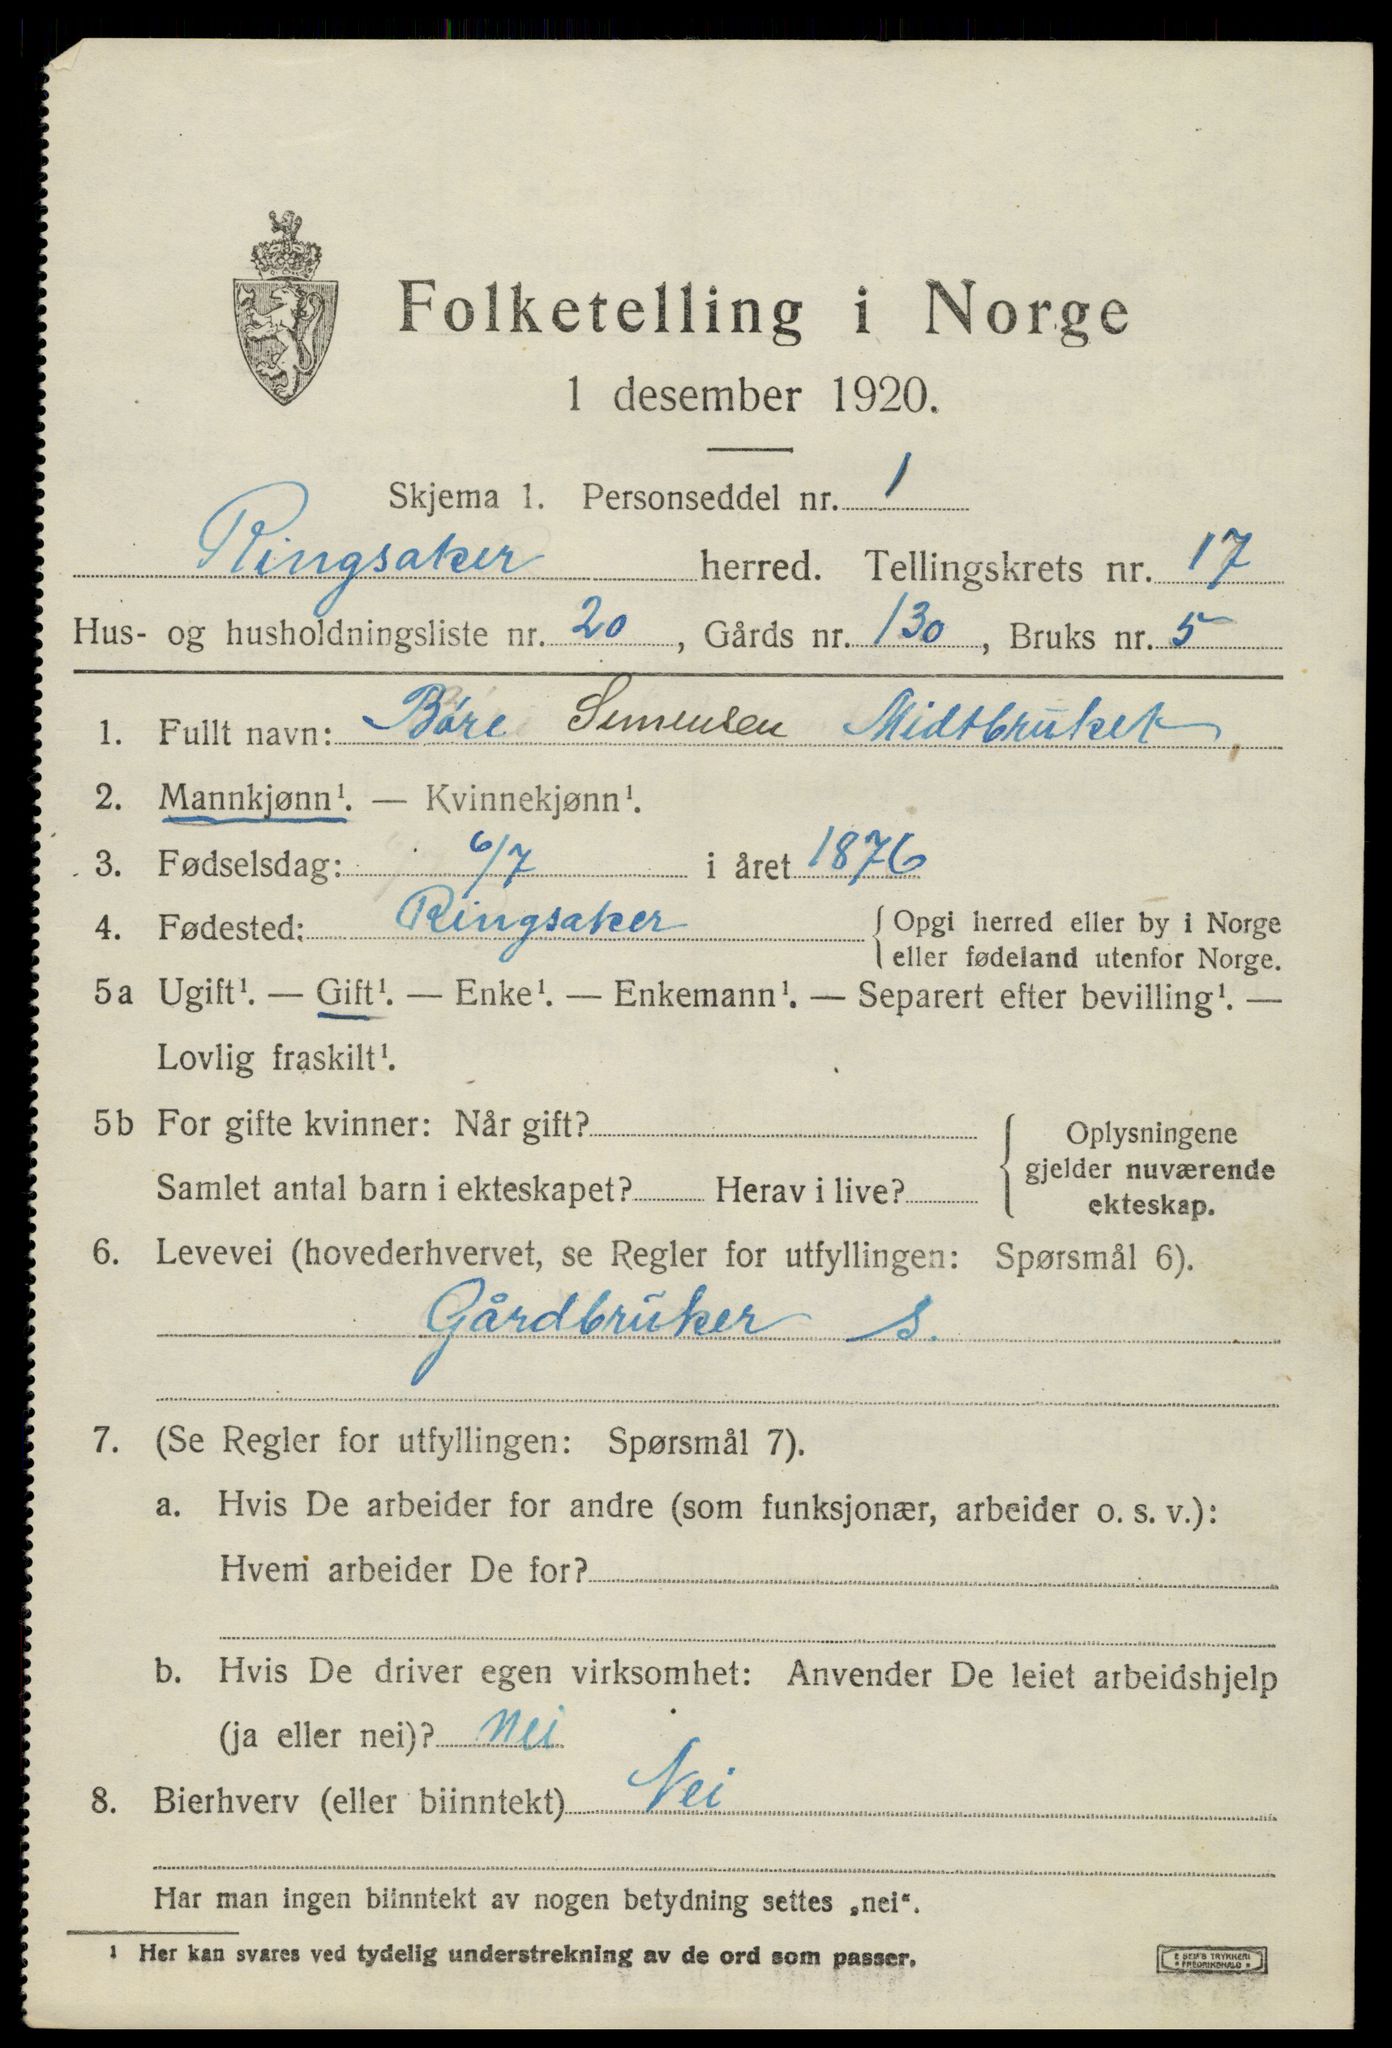 Folketelling i Norge
1 desember 1920.
Skjema 1. Personseddel nr. 1
Ringsaker herred. Tellingskrets nr. 17
Hus- og husholdningsliste nr. 20, Gårds nr. 130, Bruks nr. 5
1. Fullt navn: Børe Simensen Midtbruket
2. Mannkjønn¹. — Kvinnekjønn¹.
3. Fødselsdag: 6/7 i året 1876
4. Fødested: Ringsaker { Opgi herred eller by i Norge
eller fødeland utenfor Norge.
5a Ugift¹. — Gift¹. — Enke¹. — Enkemann¹. — Separert efter bevilling¹. —
Lovlig fraskilt¹.
5b For gifte kvinner: Når gift?
Samlet antal barn i ekteskapet? Herav i live?
{ Oplysningene
gjelder nuværende
ekteskap.
6. Levevei (hovederhvervet, se Regler for utfyllingen: Spørsmål 6).
Gårdbruker s.
7. (Se Regler for utfyllingen: Spørsmål 7).
a. Hvis De arbeider for andre (som funksjonær, arbeider o. s. v.):
Hvem arbeider De for?
b. Hvis De driver egen virksomhet: Anvender De leiet arbeidshjelp
(ja eller nei)? nei
8. Bierhverv (eller biinntekt) Nei
Har man ingen biinntekt av nogen betydning settes „nei“.
¹ Her kan svares ved tydelig understrekning av de ord som passer.
E SEM'S TRYKKERI
FREDRIKSHALD